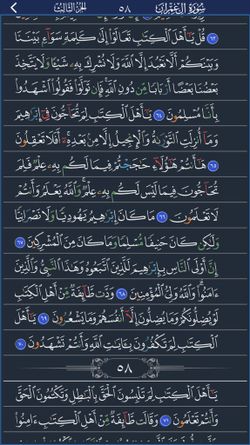 سُورَةُ آلِ عِمْرَانَ ٥٨ الجُزْءُ الثَّالِثُ
٦٣ قُلْ يَٰٓأَهْلَ ٱلْكِتَٰبِ تَعَالَوْا۟ إِلَىٰ كَلِمَةٍ سَوَآءٍۭ بَيْنَنَا
وَبَيْنَكُمْ أَلَّا نَعْبُدَ إِلَّا ٱللَّهَ وَلَا نُشْرِكَ بِهِۦ شَيْـًٔا وَلَا يَتَّخِذَ
بَعْضُنَا بَعْضًا أَرْبَابًا مِّن دُونِ ٱللَّهِ فَإِن تَوَلَّوْا۟ فَقُولُوا۟ ٱشْهَدُوا۟
بِأَنَّا مُسْلِمُونَ ٦٤ يَٰٓأَهْلَ ٱلْكِتَٰبِ لِمَ تُحَآجُّونَ فِىٓ إِبْرَٰهِيمَ
وَمَآ أُنزِلَتِ ٱلتَّوْرَىٰةُ وَٱلْإِنجِيلُ إِلَّا مِنۢ بَعْدِهِۦٓ أَفَلَا تَعْقِلُونَ
٦٥ هَٰٓأَنتُمْ هَٰٓؤُلَآءِ حَٰجَجْتُمْ فِيمَا لَكُم بِهِۦ عِلْمٌ فَلِمَ
تُحَآجُّونَ فِيمَا لَيْسَ لَكُم بِهِۦ عِلْمٌ وَٱللَّهُ يَعْلَمُ وَأَنتُمْ
لَا تَعْلَمُونَ ٦٦ مَا كَانَ إِبْرَٰهِيمُ يَهُودِيًّا وَلَا نَصْرَانِيًّا
وَلَٰكِن كَانَ حَنِيفًا مُّسْلِمًا وَمَا كَانَ مِنَ ٱلْمُشْرِكِينَ ٦٧
إِنَّ أَوْلَى ٱلنَّاسِ بِإِبْرَٰهِيمَ لَلَّذِينَ ٱتَّبَعُوهُ وَهَٰذَا ٱلنَّبِىُّ وَٱلَّذِينَ
ءَامَنُوا۟ وَٱللَّهُ وَلِىُّ ٱلْمُؤْمِنِينَ ٦٨ وَدَّت طَّآئِفَةٌ مِّنْ أَهْلِ ٱلْكِتَٰبِ
لَوْ يُضِلُّونَكُمْ وَمَا يُضِلُّونَ إِلَّآ أَنفُسَهُمْ وَمَا يَشْعُرُونَ ٦٩ يَٰٓأَهْلَ
ٱلْكِتَٰبِ لِمَ تَكْفُرُونَ بِـَٔايَٰتِ ٱللَّهِ وَأَنتُمْ تَشْهَدُونَ ٧٠
٥٨
يَٰٓأَهْلَ ٱلْكِتَٰبِ لِمَ تَلْبِسُونَ ٱلْحَقَّ بِٱلْبَٰطِلِ وَتَكْتُمُونَ ٱلْحَقَّ
وَأَنتُمْ تَعْلَمُونَ ٧١ وَقَالَت طَّآئِفَةٌ مِّنْ أَهْلِ ٱلْكِتَٰبِ ءَامِنُوا۟